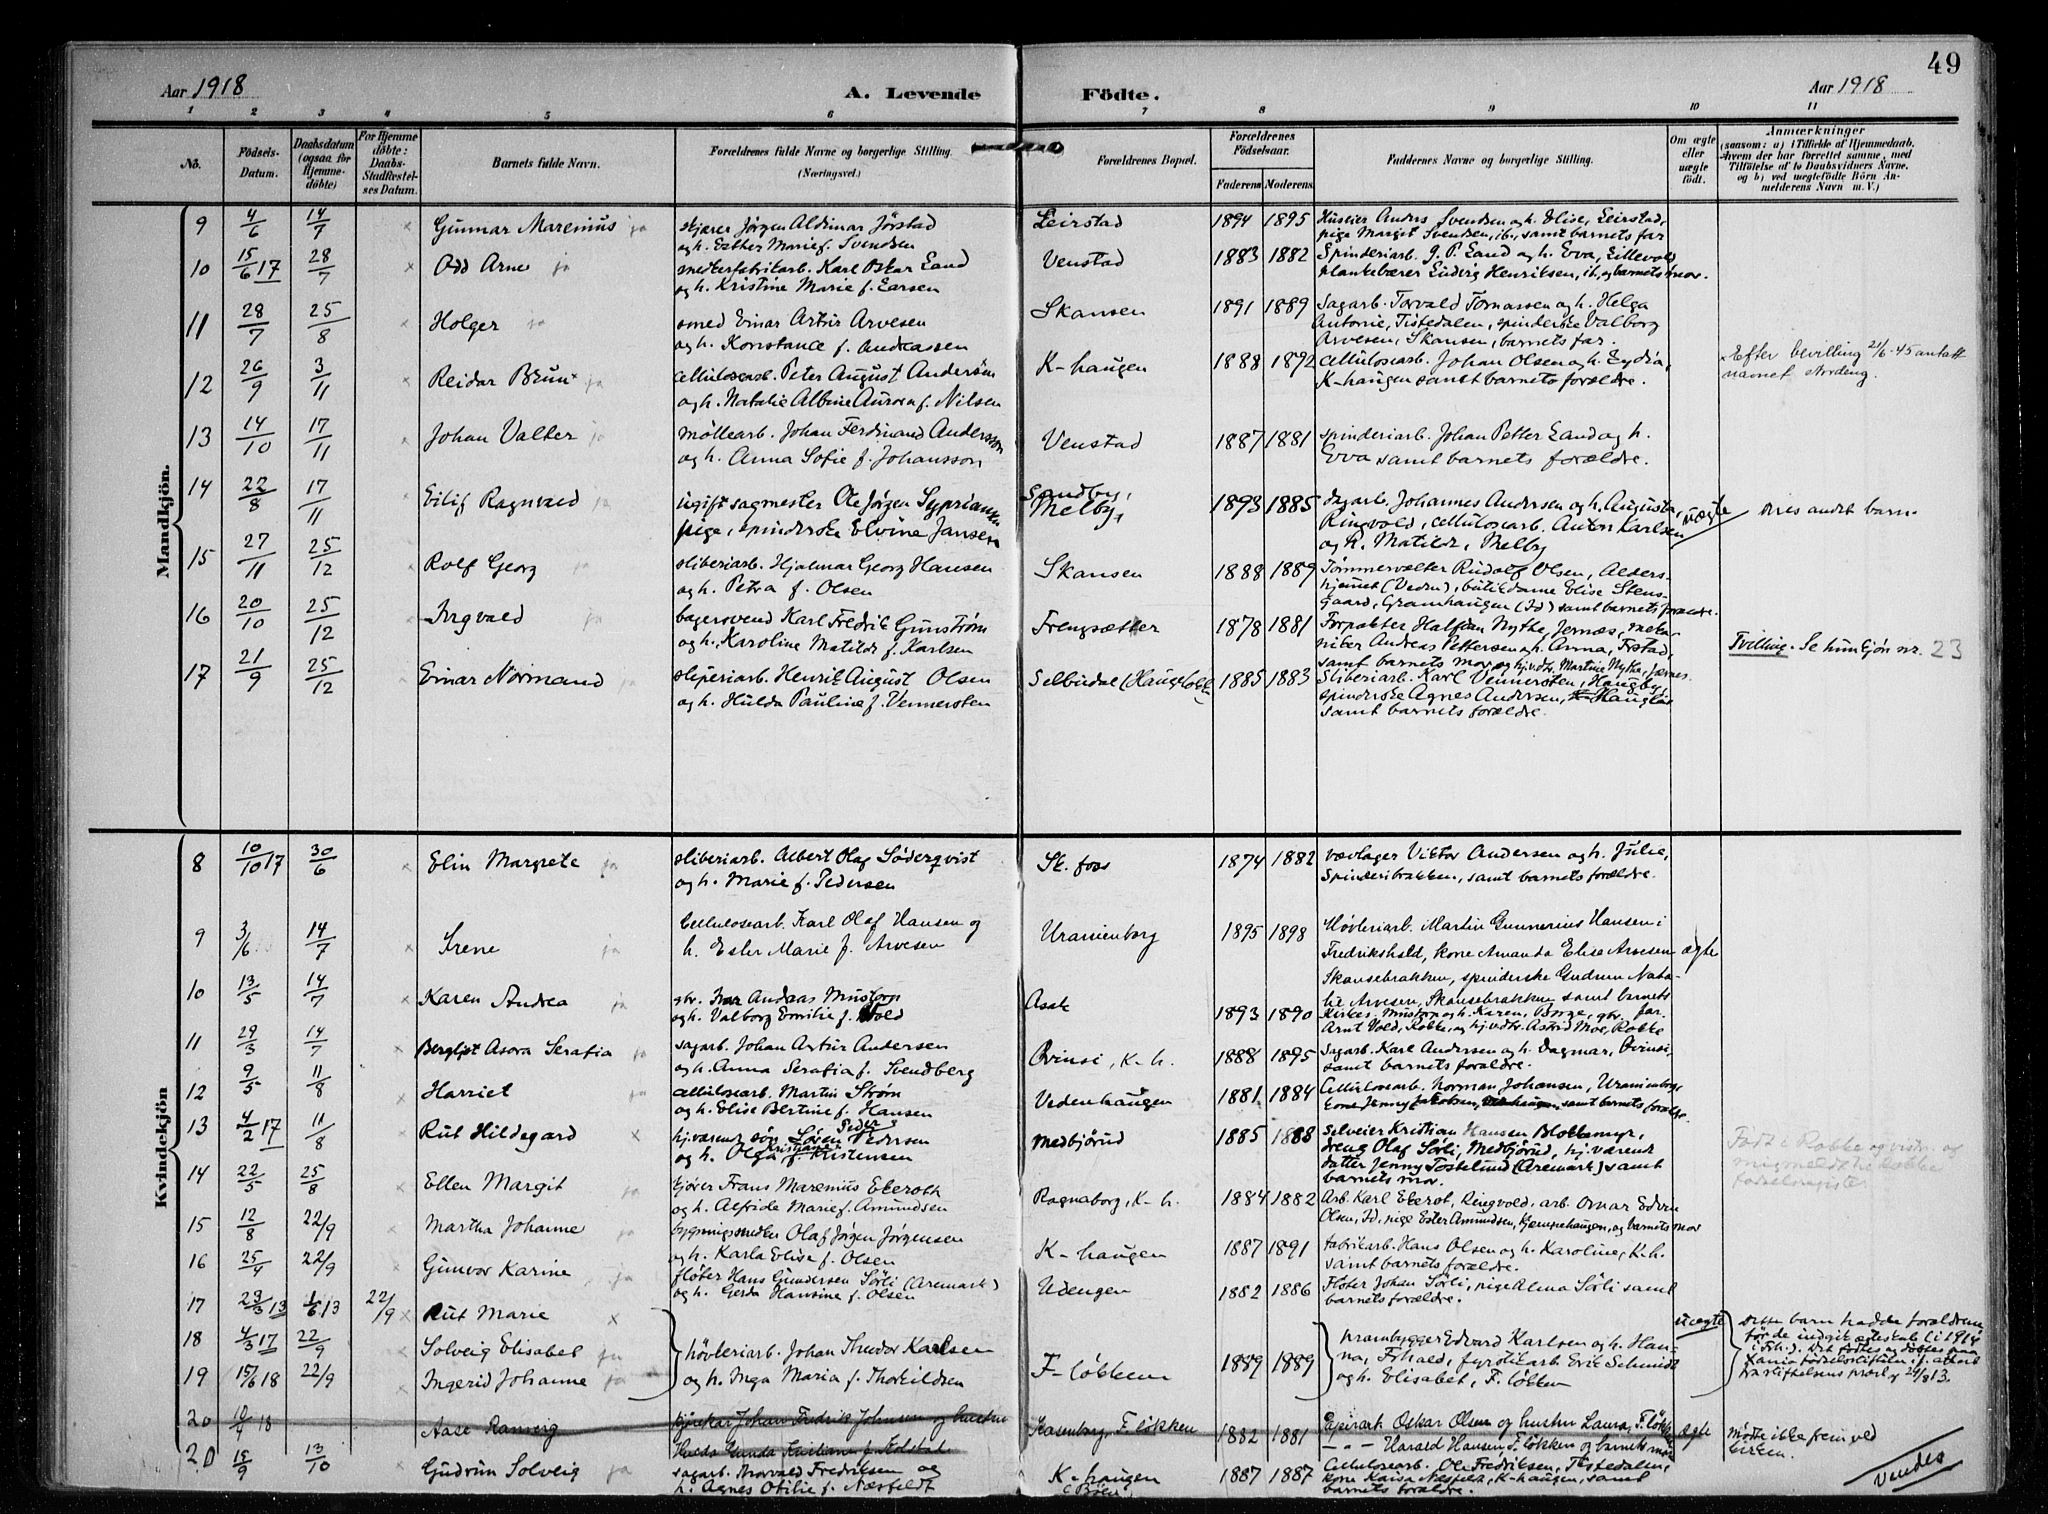 49
Aar 1918
A. Levende
Födte.
Aar 1918
1 2 3 4 5 6 7 8 9 10 11
No.
Födsels-
Datum.
Daabsdatum
(ogsaa for
Hjemme-
døbte)
For Hjemme
døbte:
Daabs-
Stadfæstel-
ses Datum.
Barnets fulde Navn.
Forældrenes fulde Navne og borgerlige Stilling.
(Næringsvei.)
Forældrenes Bopæl.
Forældrenes
Födselsaar.
Faderens. Moderens.
Faddernes Navne og borgerlige Stilling.
Om ægte
eller
uægte
födt.
Anmærkninger
(saasom: a) i Tilfælde af Hjemmedaab,
hvem der har forrettet samme, med
Tilföielse af to Daabsvidners Navne,
og b) ved uægtefödte Börn An-
melderens Navn m. V.)
Mandkjön.
9 4/6 14/7 Gunnar Marenius ja
Jørgen Aldimar Jørstad
og h. Esther Marie f. Svendsen
Leirstad 1894 1895
Huseier Anders Svendsen og h. Elise, Leirstad,
pige Margit Svendsen, ib., samt barnets far
10 15/6 17 28/7 Odd Arne ja
Karl Oskar Land
og h. Kristine Marie f. Larsen
Venstad 1883 1882
Spinderiarb. J. P. Land og h. Eva, Lillevold
plankebærer Ludvig Henriksen, ib, og barnets mor.
11 28/7 25/8 Holger ja
smed Einar Artur Arvesen
og h. Konstance f. Andreassen
Skansen 1891 1889
Sagarb. Torvald Tomassen og h. Helga
Antonie, Tistedalen, spinderske Valborg
Arvesen, Skansen, barnets far.
12 26/9 3/11 Reidar Brun× ja
cellulosearb. Peter August Andersen
og h. Natalie Albine Aurora f. Nilsen
K-haugen 1888 1892
cellulosearb. Johan Olsen og h. Lydia,
K-haugen samt barnets forældre.
×Efter bevilling 21/6-45 antatt
navnet Nordeng.
13 14/10 17/11 Johan Valter ja
møllearb. Johan Ferdinand Andersson
og h. Anna Sofie f. Johansson
Venstad 1887 1881
spinderiarb. Johan Petter Land og h.
Eva samt barnets forældre.
14 22/8 17/11 Eilif Ragnvald ja
ugift sagmester Ole Jørgen Syprian
pige, spinderske Elvine Jansen
Sandby,
Melby, 1893 1885
Sagarb. Johannes Andersen og h. Augusta,
Ringvold, cellulosearb. Anton Karlsen
og h. Matilde, Melby
uægte
andet barn.
15 27/11 25/12 Rolf Georg ja
sliberiarb. Hjalmar Georg Hansen
og h. Petra f. Olsen
Skansen 1888 1889
Tømmervælter Rudolf Olsen, Alders-
hjemmet (Veden), butikdame Elise Stens-
gaard, Gramhaugen (Id) samt barnets forældre.
16 20/10 25/12 Ingvald ja
bagersvend Karl Fredrik Gunstrøm
og h. Karoline Matilde f. Karlsen
Frengsætter 1878 1881
Forpakter Halfdan Nythe, Jernæs,
Andreas Pettersen og h. Anna, Istad,
samt barnets mor og hj.v.dtr. Martine Nythe, Jernæs
Tvilling. Se kvinkjøn nr. 23
17 21/9 25/12 Einar Normand ja
sliperiarb. Henrik August Olsen
og h. Hulda Pauline f. Vennersten
Selbudal 1885 1883
Sliberiarb. Karl Vennersten, Haugby,
spinderske Agnes Andersen,
samt barnets forældre.
Kvindekjön
8 10/10 17 30/6 Elin Margrete ja
sliberiarb. Albert Olaf Söderqvist
og h. Marie f. Pedersen
Sk. foss 1874 1882
vævlager Viktor Andersen og h. Julie,
Spinderibrakken, samt barnets forældre.
9 3/6 14/7 Irene ja
Cellulosearb. Karl Olaf Hansen og
h. Ester Marie f. Arvesen
Uranienborg 1895 1898
Høvleriarb. Martin Gunnerius Hansen i
Fredrikshald, kone Amanda Elise Arvesen
Skansebrakken, spinderske Gudrun Nata-
lie Arvesen, Skansebrakken samt barnets
far.
ægte
10 13/5 14/7 Karen Andrea ja
gbr. Ivar Andreas Mustorp
og h. Valborg Emilie f. Vold
Asak 1893 1890
Mustorp og h. Karen, Berge, gbr.
Arnt Vold, Rokke, og hj.v.dtr. Astrid Moe, Rokke
11 29/3 14/7 Bergljot Asora Serafia ja
sagarb. Johan Artur Andersen
og h. Anna Serafia f. Svendberg
Ovinsi, K-h. 1888 1895
Sagarb. Karl Andersen og h. Dagmar, Ovinsi,
samt barnets forældre.
12 9/5 11/8 Harriet
cellulosearb. Martin Strøm
og h. Elise Bertine f. Hansen
Vedenhaugen 1881 1884
Cellulosearb. Norman Johansen, Uranienborg,
samt barnets forældre.
13 4/2 17 11/8 Rut Hildegard ×
hj.værende søn Søren Peder Pedersen
og h. Olga Kristiane f. Kristensen
Medbjørud 1885 1888
Selveier Kristian Hansen Blokkemyr,
dreng Olaf Sørli, Medbjørud, hj.værende
datter Jenny Toselund (Aremark) samt
barnets mor.
Født i Rokke
14 22/5 25/8 Ellen Margit ja
kjører Frans Marenius Ekeroth
og h. Alfride Marie f. Amundsen
Ragnaborg, K-h. 1884 1882
Arb. Karl Ekerot, Ringvold, arb. Omar Edvin
Olsen, Id, pige Ester Amundsen, Kjempehaugen, og barnets mor
15 12/8 22/9 Martha Johanne ja
bygningssneker Olaf Jørgen Jørgensen
og h. Karla Elise f. Olsen
K-haugen 1887 1891
fabrikarb. Hans Olsen og h. Karoline, K-h.
samt barnets forældre.
16 25/4 22/9 Gunvor Karine ja
fløter Hans Gundersen Sørli (Aremark)
og h. Gerda Hansine f. Olsen
Udengen 1882 1886
Fløter Johan Sørli, pige Alma Sørli samt
barnets forældre.
17 23/3 13 1/6 13 22/9 Rut Marie ×
18 4/3 17 22/9 Solveig Elisabet ja
19 15/6 18 22/9 Ingerid Johanne ja
høvleriarb. Johan Theodor Karlsen
og h. Inga Maria f. Thorkildsen
F-løkken 1889 1889
Edvard Karlsen og h. Han-
na, Fr.hald, fyrstikarb. Erik Schmidt
og h. Elisabet, F. løkken
uægte
dette barn hadde forældrene
før de indgik ægteskab i 1914
20 10/4 18 Aase Ranveig
Johan Fredrik Johnsen og hustru
Hulda Gunda Kristiane f. Kolstad
Rosenborg, F. løkken 1882 1881
Oskar Olsen og hustru Laura, F. løkken
— „ — Harald Hansen F. løkken og barnets mor
ægte
Mødte ikke frem ved
kirken.
20 15/9 13/10 Gudrun Solveig ja
sagarb. Torvald Fredriksen og
h. Agnes Otilie f. Næsfeldt
K-haugen 1887 1887
Cellulosearb. Ole Fredriksen, Tistedalen,
kone Kaisa Næsfeldt, K-haugen, samt
barnets forældre.
Vendes